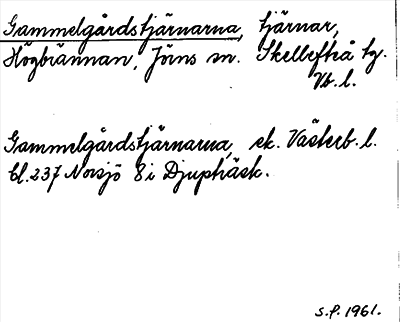 Gammelgårdstjärnarna, tjärnar,
Högbrännan, Jörns sn. Skellefteå tg.
Vb. l.
Gammelgårdstjärnarna, ek. Västerb. l.
bl. 237 Norsjö 8 i Djupträsk.
S.P. 1961.